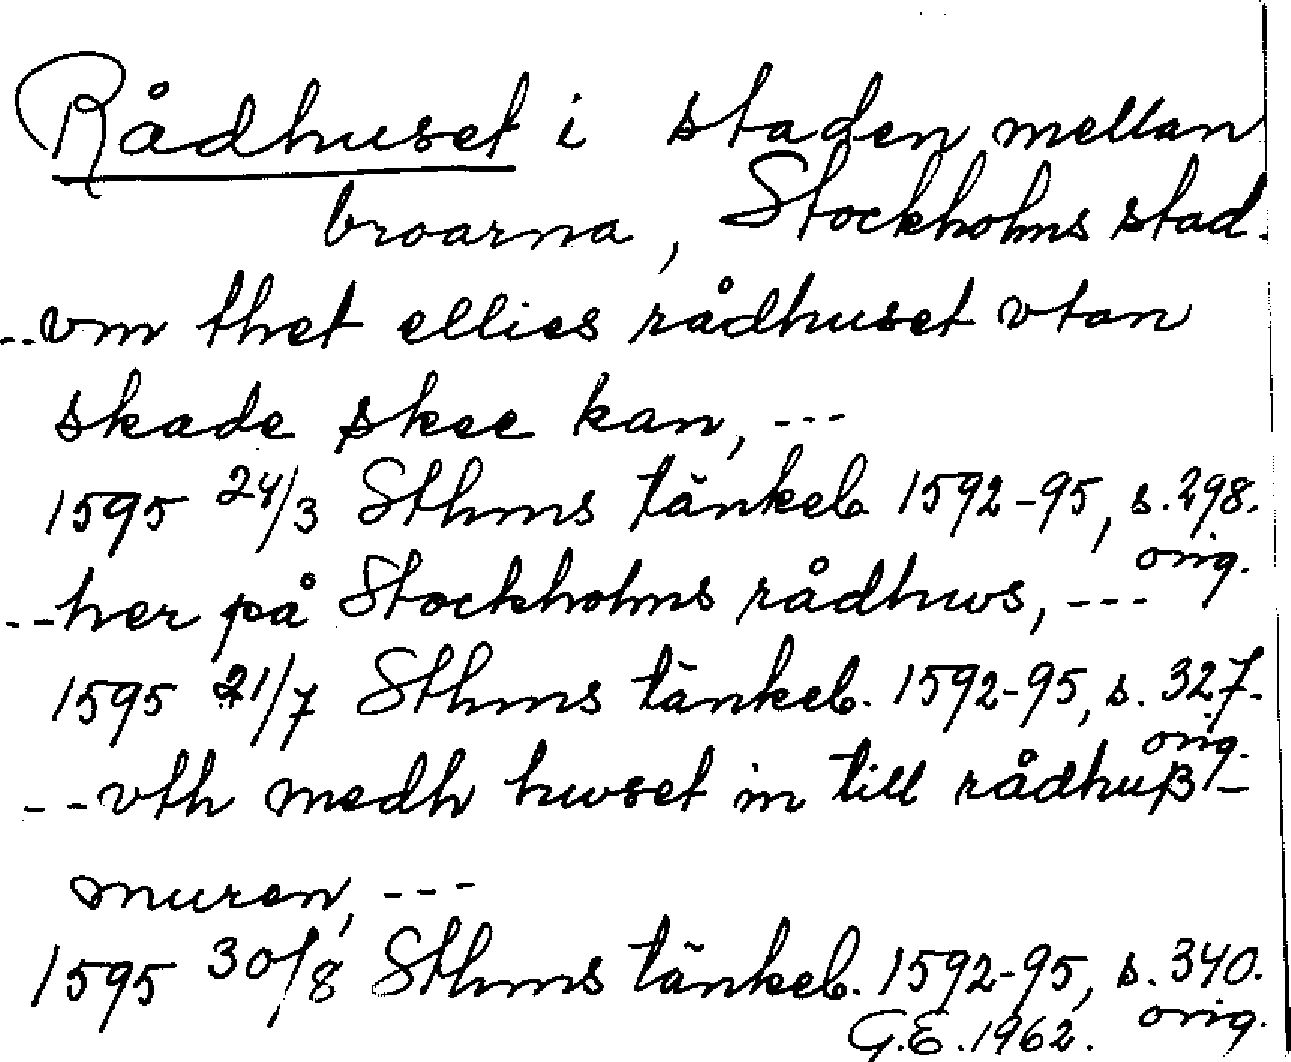 Rådhuset i staden mellan
broarna, Stockholms stad.
--vm thet ellies rådhuset vtan
skade skee kan, ---
1595 24/3 Sthms tänkeb. 1592-95, s. 298.
orig.
--her på Stockholms rådhws, ---
1595 21/7 Sthms tänkeb. 1592-95, s. 327.
orig.
--vth medh hwset in till rådhuß-
muren, ---
1595 30/8 Sthms tänkeb. 1592-95, s. 340.
orig.
G.E. 1962.